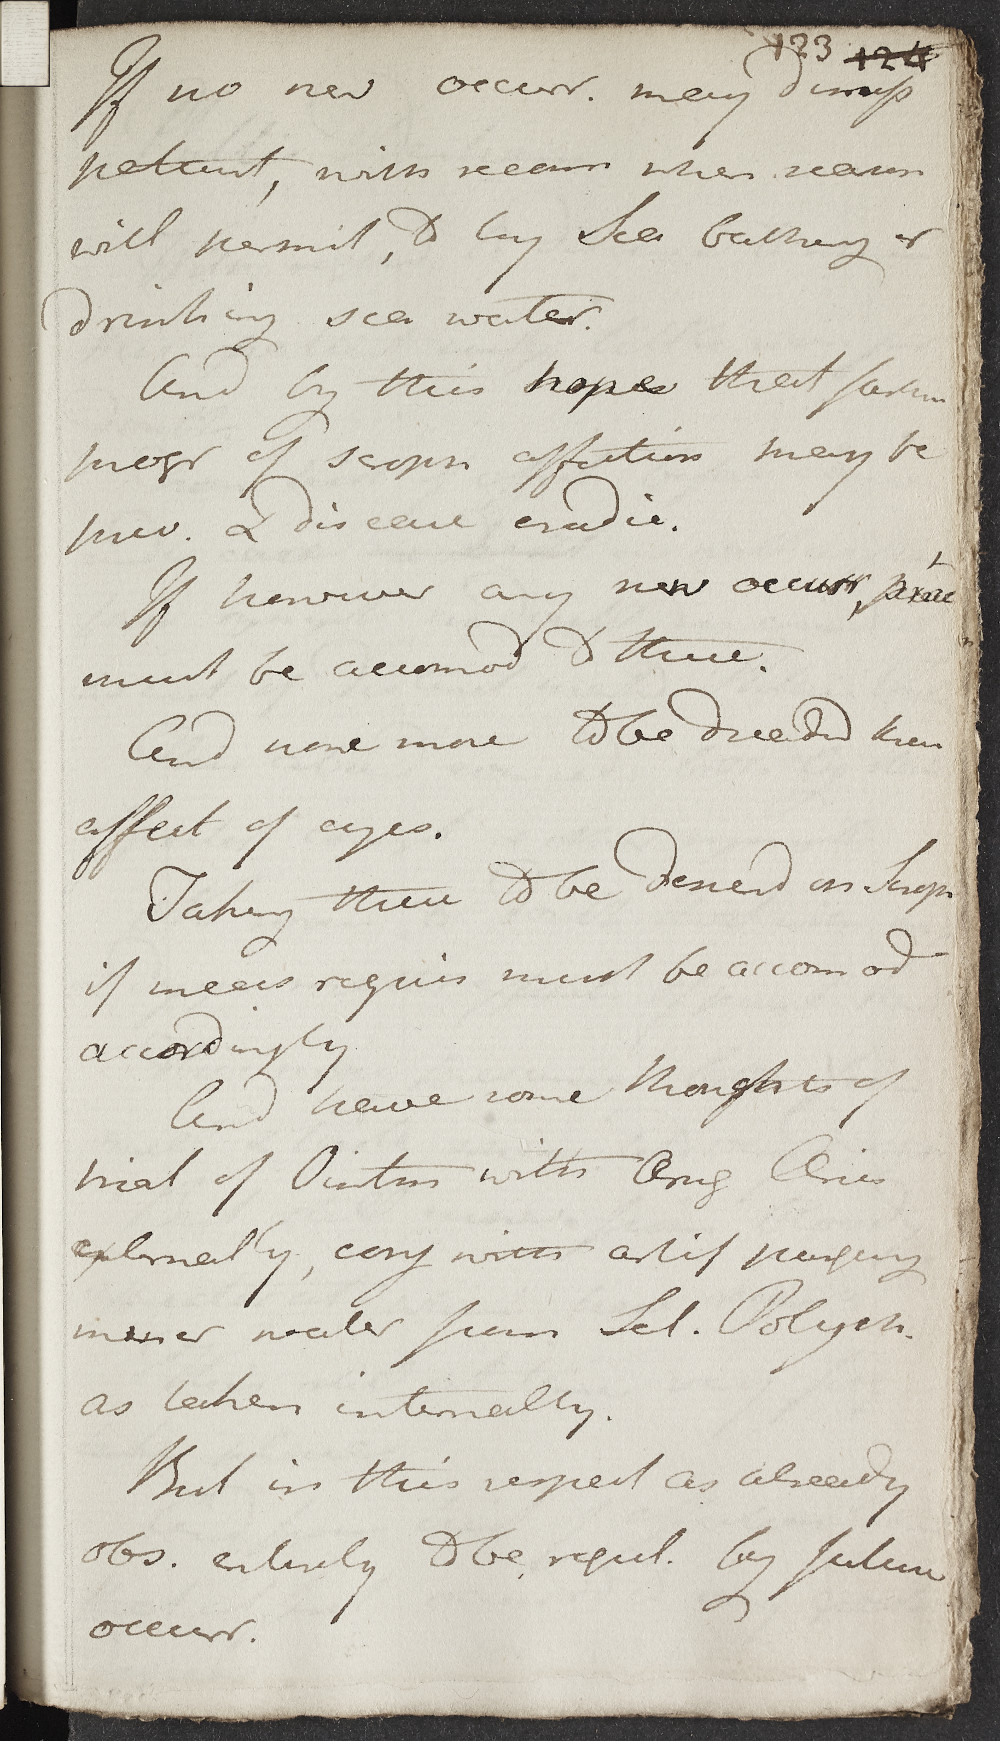 123 124
If no new occurr. may dimiss
patient, with recom when season
will permit, to try Sea bathing or
drinking sea water.
And by this hope that furthr
progr of scroph affections may be
prev. & disease eradic.
If however any new occurr, pract
must be accomod to these.
And none more to be dreaded than
affect of eyes.
Taking these to be depend on Scroph
if meas requir must be accomod
accordingly
And have some thoughts of
trial of Ointm with Aerug Aeris
externally, conj with artif purging
miner water from Sal. Polych.
as taken internally.
But in this respect as already
obs. entirely to be regul. by future
occurr.